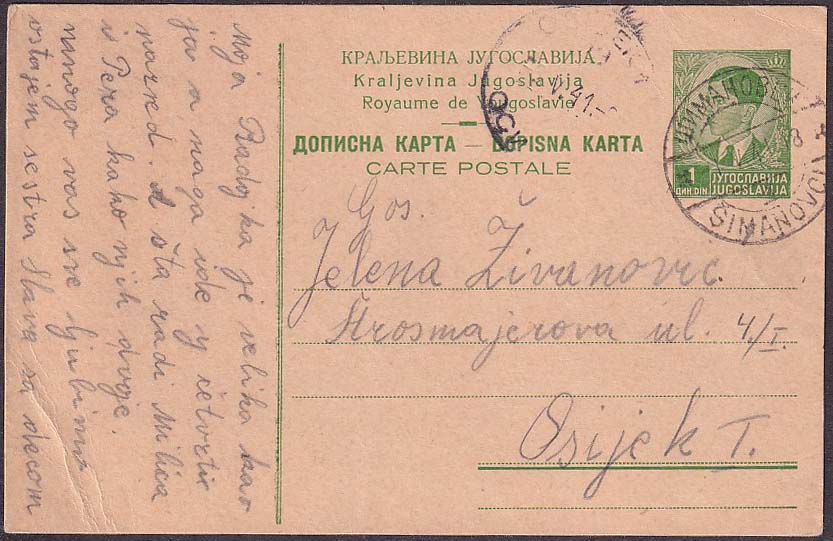 Moja Radojka je velika kao
ja a, maga ide y četvrti
razred. A šta radi Milica
i Pera kako njih dvoje.
mnogo vas sve ljubimo
ostajem sestra Slava sa decom
КРАЉЕВИНА ЈУГОСЛАВИЈА
Kraljevina Jugoslavija
Royaume de Yougoslavie
ДОПИСНА КАРТА — DOPISNA KARTA
CARTE POSTALE
V. 41.
1
ДИН. DIN.
ЈУГОСЛАВИЈА
JUGOSLAVIJA
ШИМАНОВЦИ
ŠIMANOVCI
Gos.
Jelena Živanovic
Štrosmajerova ul. 4/I.
Osijek I.